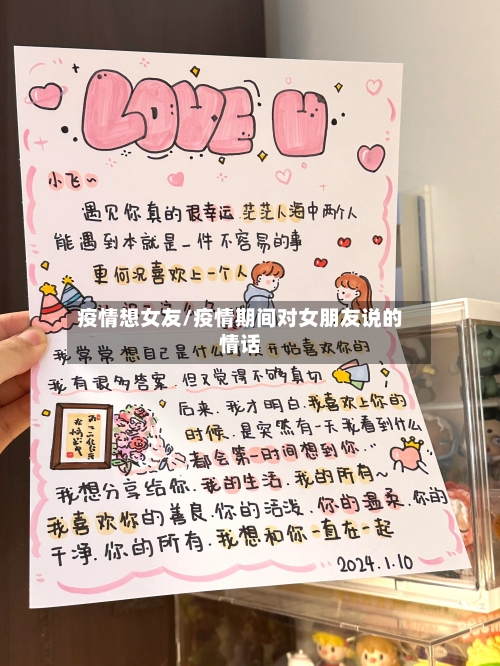 LOVE U
小飞~
遇见你真的很幸运.茫茫人海中两个人
能遇到本就是一件不容易的事
更何况喜欢上一个人
疫情想女友/疫情期间对女朋友说的
情话
我常常想自己是什么 开始喜欢你的
我有很多答案.但又觉得不够真切
后来.我才明白.我喜欢上你的
时候.是突然有一天我看到什么
都会第一时间想到你...
我想分享给你.我的生活.我的所有~
我喜欢你的善良.你的活泼.你的温柔.你的
干净.你的所有.我想和你一直在一起
2024.1.10